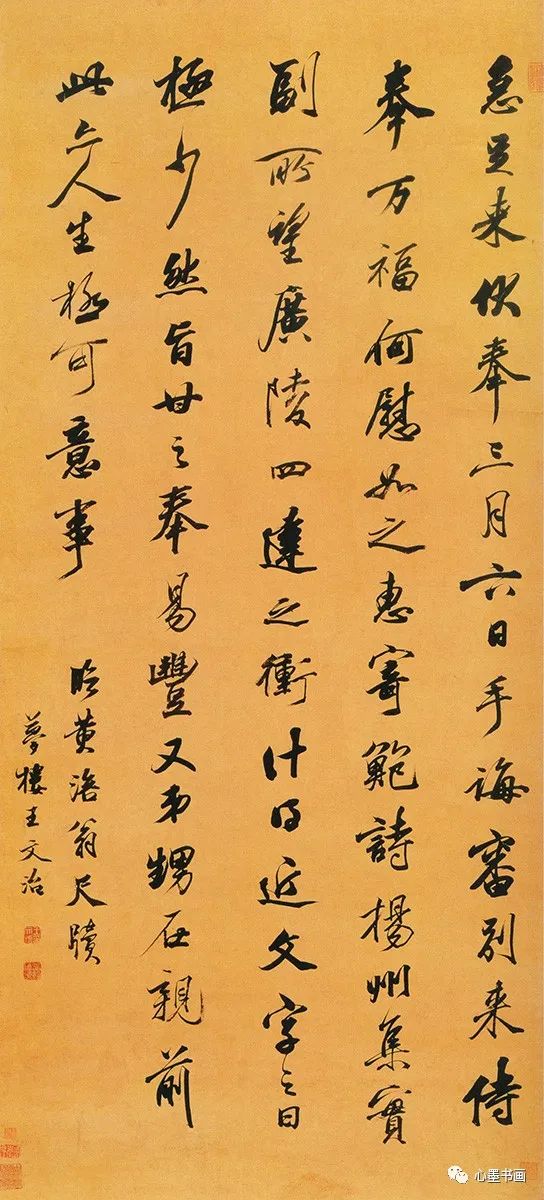 急足来伏奉三月六日手诲審别来侍
奉万福何慰如之惠寄鲍詩楊州集實
副所望廣陵四達之衝计日近文字之日
極少然旨甘之奉易豐又弟甥在親前
此亦人生極可意事
临黄涪翁尺牘
夢樓王文治
心墨书画